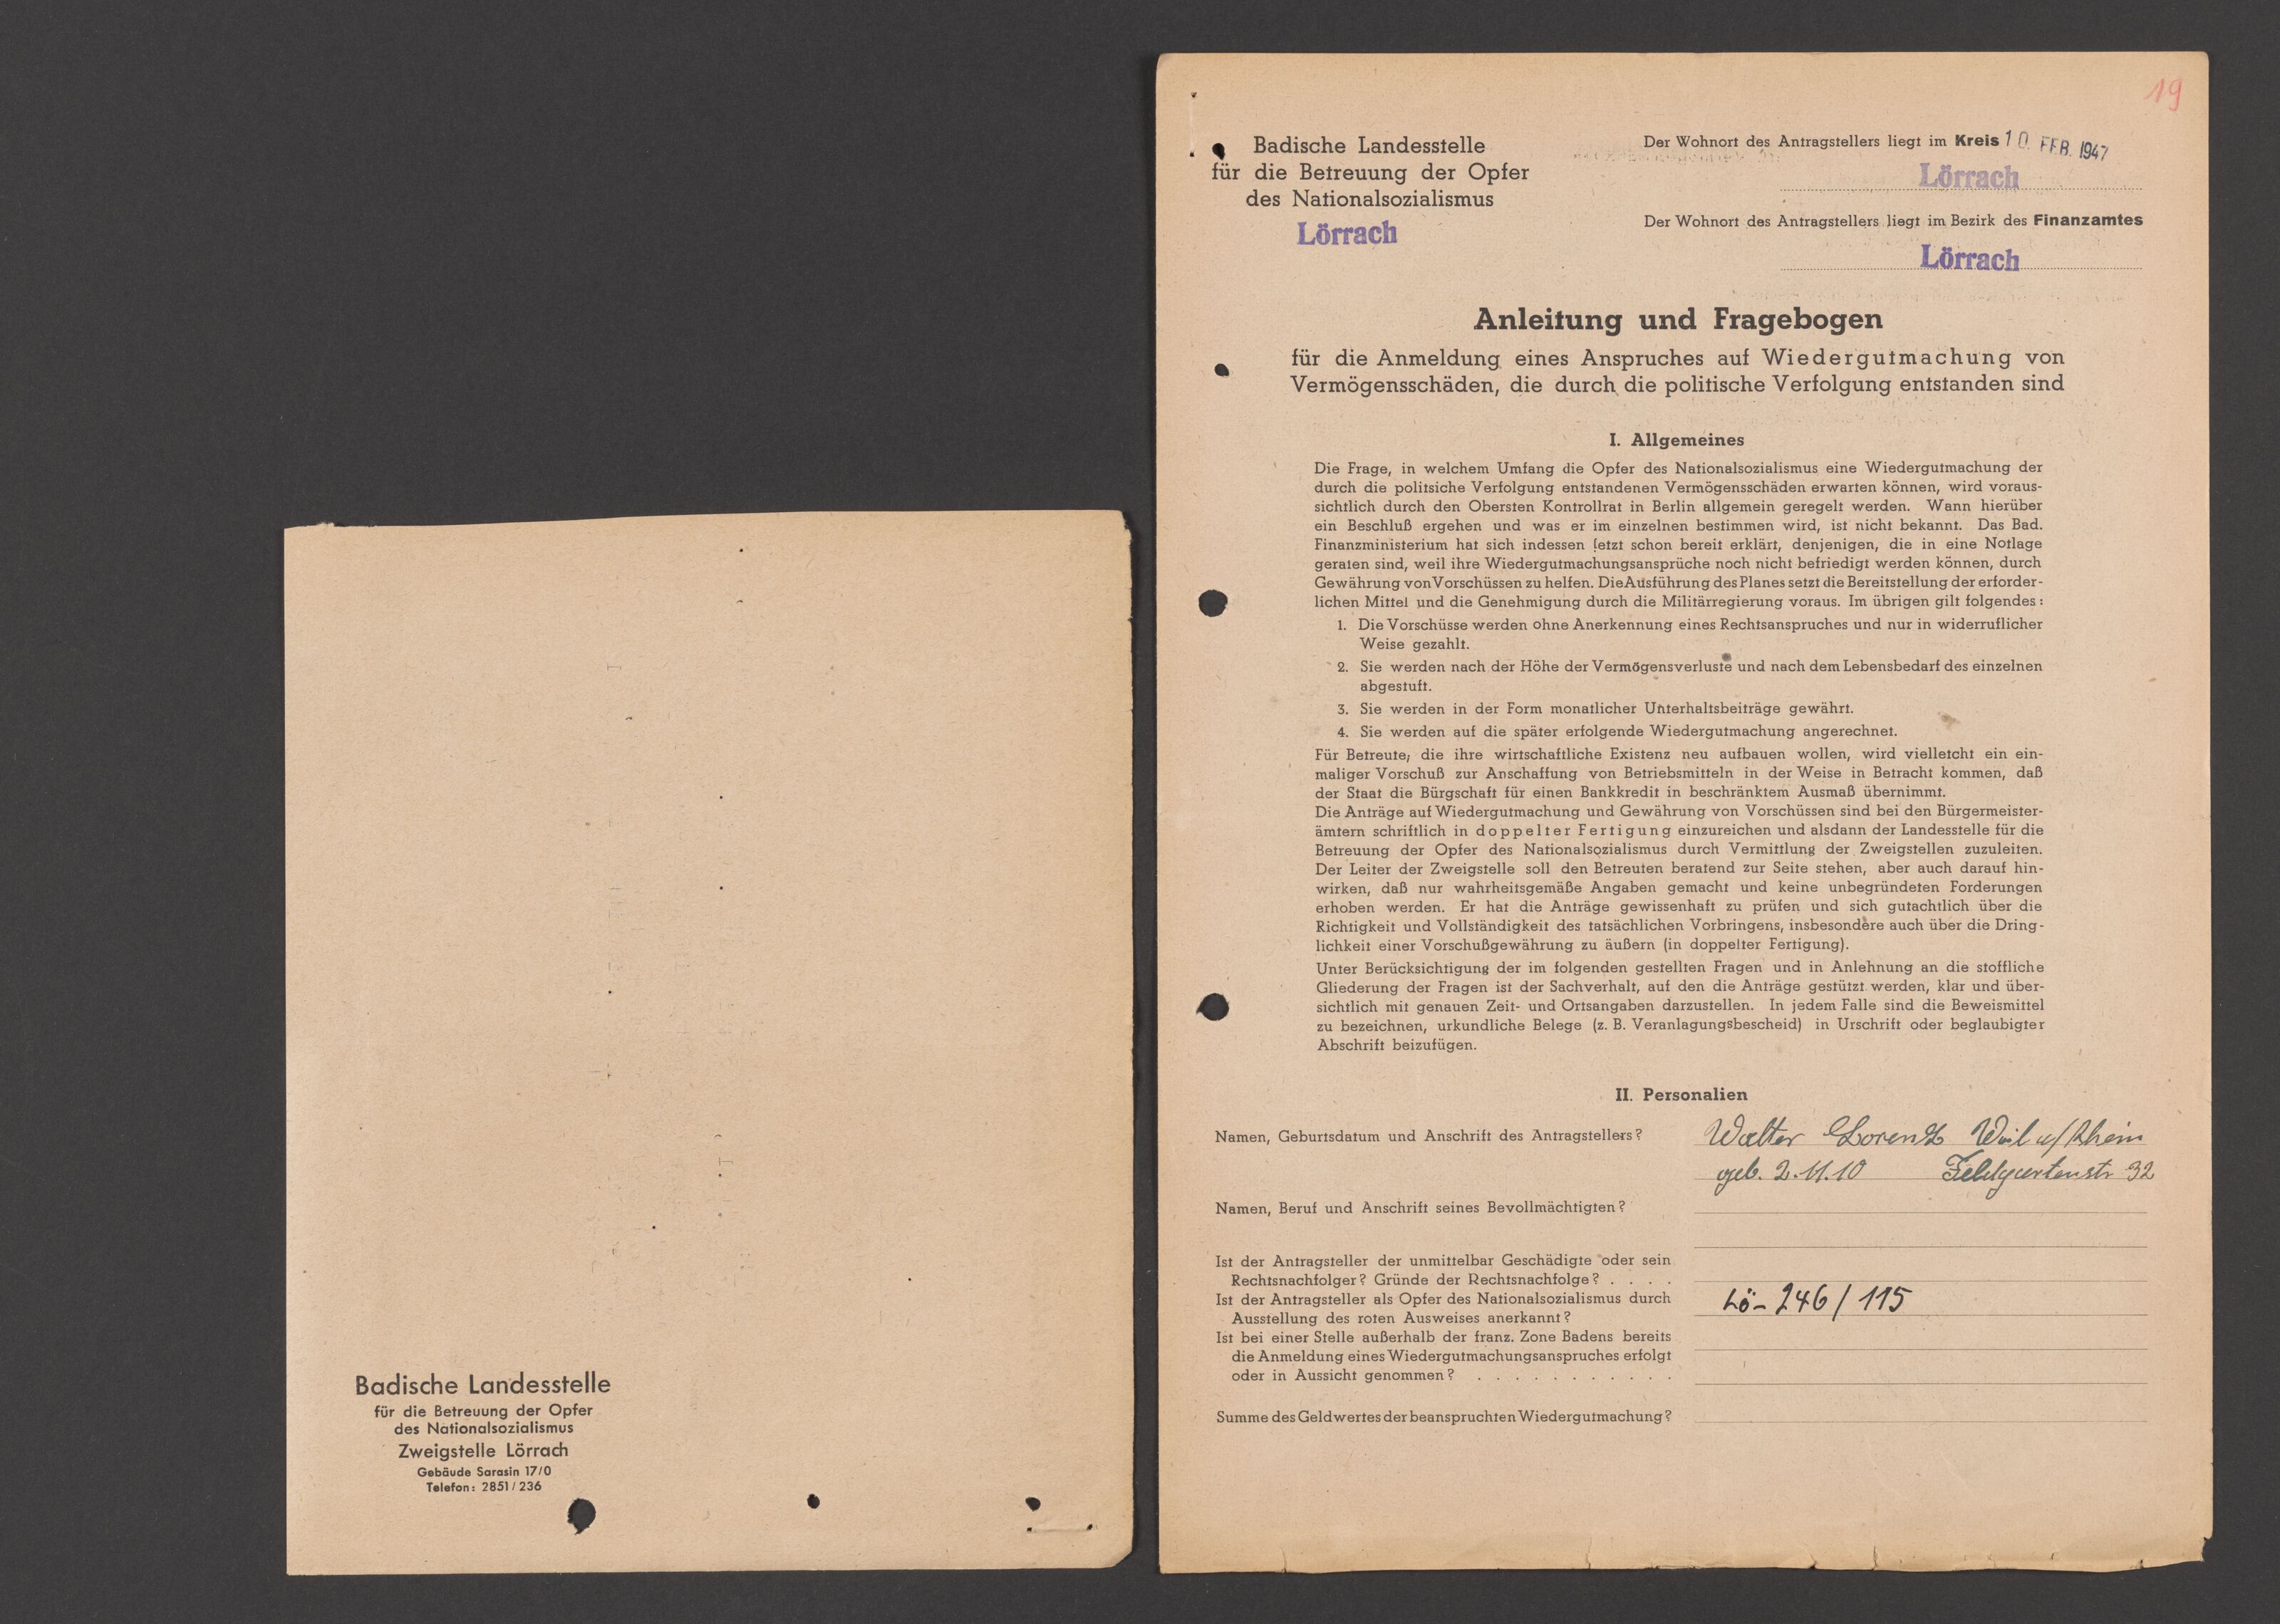 Badische Landesstelle
für die Betreuung der Opfer
des Nationalsozialismus
Zweigstelle Lörrach
Gebäude Sarasin 17/0
Telefon: 2851/236
19
Badische Landesstelle
für die Betreuung der Opfer
des Nationalsozialismus
Lörrach
Der Wohnort des Antragstellers liegt im Kreis 10. FEB. 1947
Lörrach
Der Wohnort des Antragstellers liegt im Bezirk des Finanzamtes
Lörrach
Anleitung und Fragebogen
für die Anmeldung eines Anspruches auf Wiedergutmachung von
Vermögensschäden, die durch die politische Verfolgung entstanden sind
I. Allgemeines
Die Frage, in welchem Umfang die Opfer des Nationalsozialismus eine Wiedergutmachung der
durch die politsiche Verfolgung entstandenen Vermögensschäden erwarten können, wird voraus-
sichtlich durch den Obersten Kontrollrat in Berlin allgemein geregelt werden. Wann hierüber
ein Beschluß ergehen und was er im einzelnen bestimmen wird, ist nicht bekannt. Das Bad.
Finanzministerium hat sich indessen jetzt schon bereit erklärt, denjenigen, die in eine Notlage
geraten sind, weil ihre Wiedergutmachungsansprüche noch nicht befriedigt werden können, durch
Gewährung von Vorschüssen zu helfen. Die Ausführung des Planes setzt die Bereitstellung der erforder-
lichen Mittel und die Genehmigung durch die Militärregierung voraus. Im übrigen gilt folgendes:
1. Die Vorschüsse werden ohne Anerkennung eines Rechtsanspruches und nur in widerruflicher
Weise gezahlt.
2. Sie werden nach der Höhe der Vermögensverluste und nach dem Lebensbedarf des einzelnen
abgestuft.
3. Sie werden in der Form monatlicher Unterhaltsbeiträge gewährt.
4. Sie werden auf die später erfolgende Wiedergutmachung angerechnet.
Für Betreute, die ihre wirtschaftliche Existenz neu aufbauen wollen, wird vielletcht ein ein-
maliger Vorschuß zur Anschaffung von Betriebsmitteln in der Weise in Betracht kommen, daß
der Staat die Bürgschaft für einen Bankkredit in beschränktem Ausmaß übernimmt.
Die Anträge auf Wiedergutmachung und Gewährung von Vorschüssen sind bei den Bürgermeister-
ämtern schriftlich in doppelter Fertigung einzureichen und alsdann der Landesstelle für die
Betreuung der Opfer des Nationalsozialismus durch Vermittlung der Zweigstellen zuzuleiten.
Der Leiter der Zweigstelle soll den Betreuten beratend zur Seite stehen, aber auch darauf hin-
wirken, daß nur wahrheitsgemäße Angaben gemacht und keine unbegründeten Forderungen
erhoben werden. Er hat die Anträge gewissenhaft zu prüfen und sich gutachtlich über die
Richtigkeit und Vollständigkeit des tatsächlichen Vorbringens, insbesondere auch über die Dring-
lichkeit einer Vorschußgewährung zu äußern (in doppelter Fertigung).
Unter Berücksichtigung der im folgenden gestellten Fragen und in Anlehnung an die stoffliche
Gliederung der Fragen ist der Sachverhalt, auf den die Anträge gestützt werden, klar und über-
sichtlich mit genauen Zeit- und Ortsangaben darzustellen. In jedem Falle sind die Beweismittel
zu bezeichnen, urkundliche Belege (z. B. Veranlagungsbescheid) in Urschrift oder beglaubigter
Abschrift beizufügen.
II. Personalien
Namen, Geburtsdatum und Anschrift des Antragstellers? Walter Lorenz Weil a/Rhein
geb. 2.11.10 Feldgartenstr 32
Namen, Beruf und Anschrift seines Bevollmächtigten?
Ist der Antragsteller der unmittelbar Geschädigte oder sein
Rechtsnachfolger? Gründe der Rechtsnachfolge? . . . .
Ist der Antragsteller als Opfer des Nationalsozialismus durch Lö- 246/115
Ausstellung des roten Ausweises anerkannt?
Ist bei einer Stelle außerhalb der franz. Zone Badens bereits
die Anmeldung eines Wiedergutmachungsanspruches erfolgt
oder in Aussicht genommen? . . . . . . . . . . .
Summe des Geldwertes der beanspruchten Wiedergutmachung?